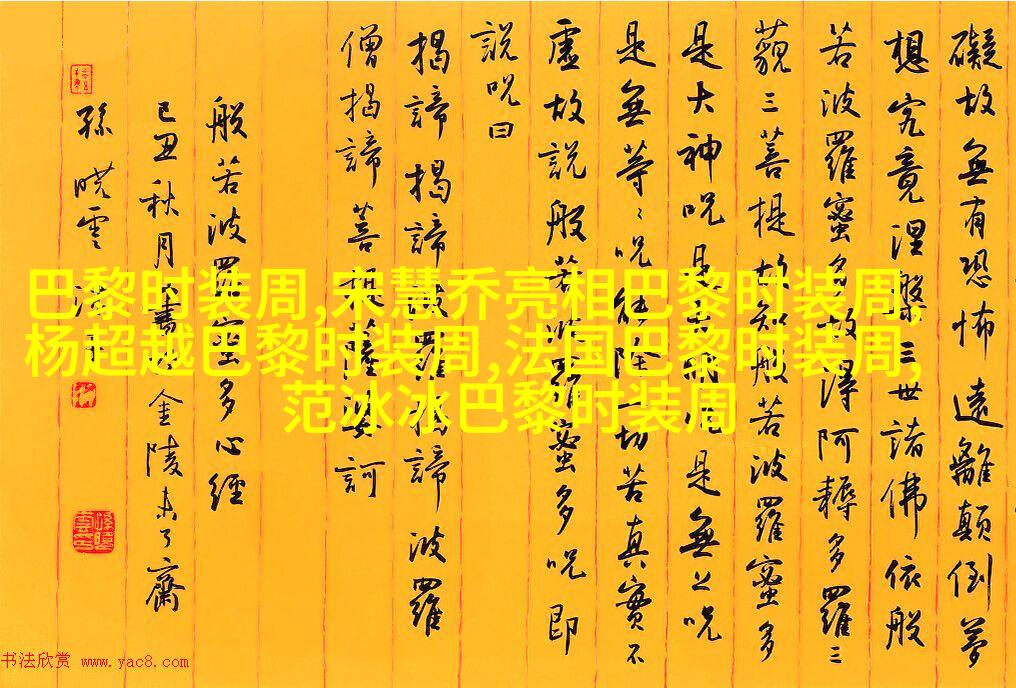 礙故無有恐怖遠離顛倒夢
想究竟涅槃三世諸佛依般
若波羅蜜多故得阿耨多羅三
藐三菩提故知般若波羅蜜多
是大神咒是大明咒是無上咒
是無等〻咒能除一切苦真實不
虛故說般若波羅蜜多咒即
說咒曰
揭諦揭諦波羅揭諦波羅
僧揭諦菩提薩婆訶
般若波羅蜜多心經
己丑秋月書於金陵未了齋
孫曉雲
巴黎时装周,宋慧乔亮相巴黎时装周,
杨超越巴黎时装周,法国巴黎时装周,
范冰冰巴黎时装周
书法欣赏 www.yac8.com